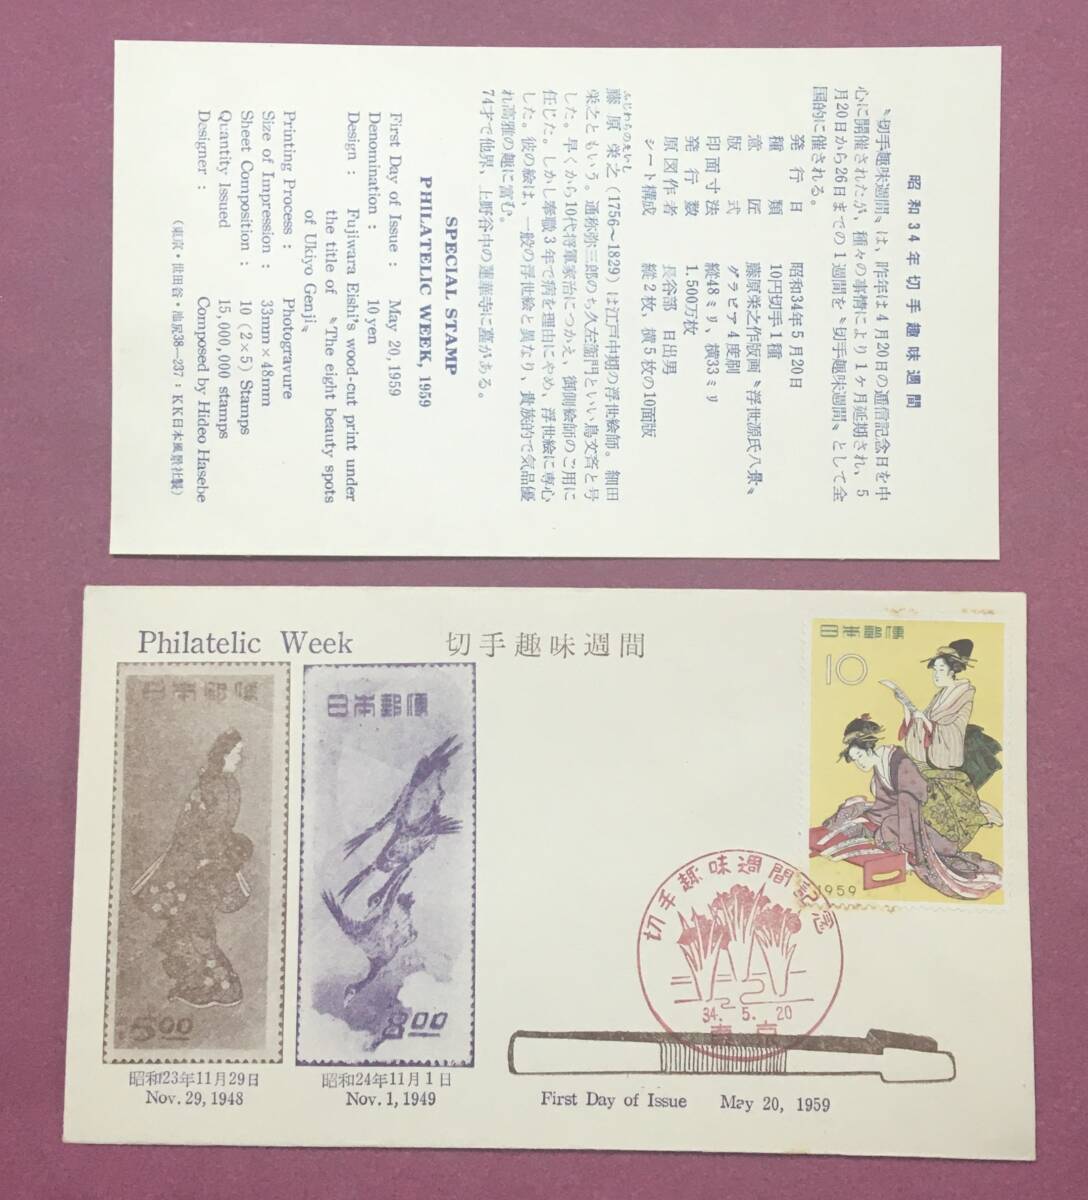 昭和34年切手趣味週間
〝切手趣味週間〟は、昨年は4月20日の逓信記念日を中
心に開催されたが、種々の事情により1ケ月延期され、5
月20日から26日までの1週間を〝切手趣味週間〟として全
国的に催される。
発行日 昭和34年5月20日
種類 10円切手1種
意匠 藤原栄之作版画〝浮世源氏八景〟
版式 グラビア4度刷
印面寸法 縦48ミリ、横33ミリ
発行数 1.500万枚
原図作者 長谷部 日出男
シート構成 縦2枚、横5枚の10面版
ふじわらのえいし
藤原栄之(1756～1829)は江戸中期の浮世絵師。細田
栄之ともいう。通称弥三郎のち久左衞門といい鳥文斎と号
した。早くから10代将軍家治につかえ、御側絵師のご用に
任じた。しかし奉職3年で病を理由にやめ、浮世絵に専心
した。彼の絵は、一般の浮世絵と異なり、貴族的で気品優
れ高雅の趣に富む。
74才で他界、上野谷中の蓮華寺に墓がある。
SPECIAL STAMP
PHILATELIC WEEK, 1959
First Day of Issue : May 20, 1959
Denomination : 10 yen
Design : Fujiwara Eishi's wood-cut print under
the title of 〝The eight beauty spots
of Ukiyo Genji〟
Printing Process : Photogravure
Size of Impression : 33mm×48mm
Sheet Composition : 10 (2×5) Stamps
Quantity Issued 15,000,000 stamps
Designer : Composed by Hideo Hasebe
(東京・世田谷・池尻38—237:KK日本風景社製)
Philatelic Week 切手趣味週間
日本郵便
5.00
日本郵便
8.00
昭和23年11月29日
Nov. 29, 1948
昭和24年11月1日
Nov. 1, 1949
日本郵便
10
1959
切手趣味週間記念
34. 5. 20
東京
First Day of Issue May 20, 1959